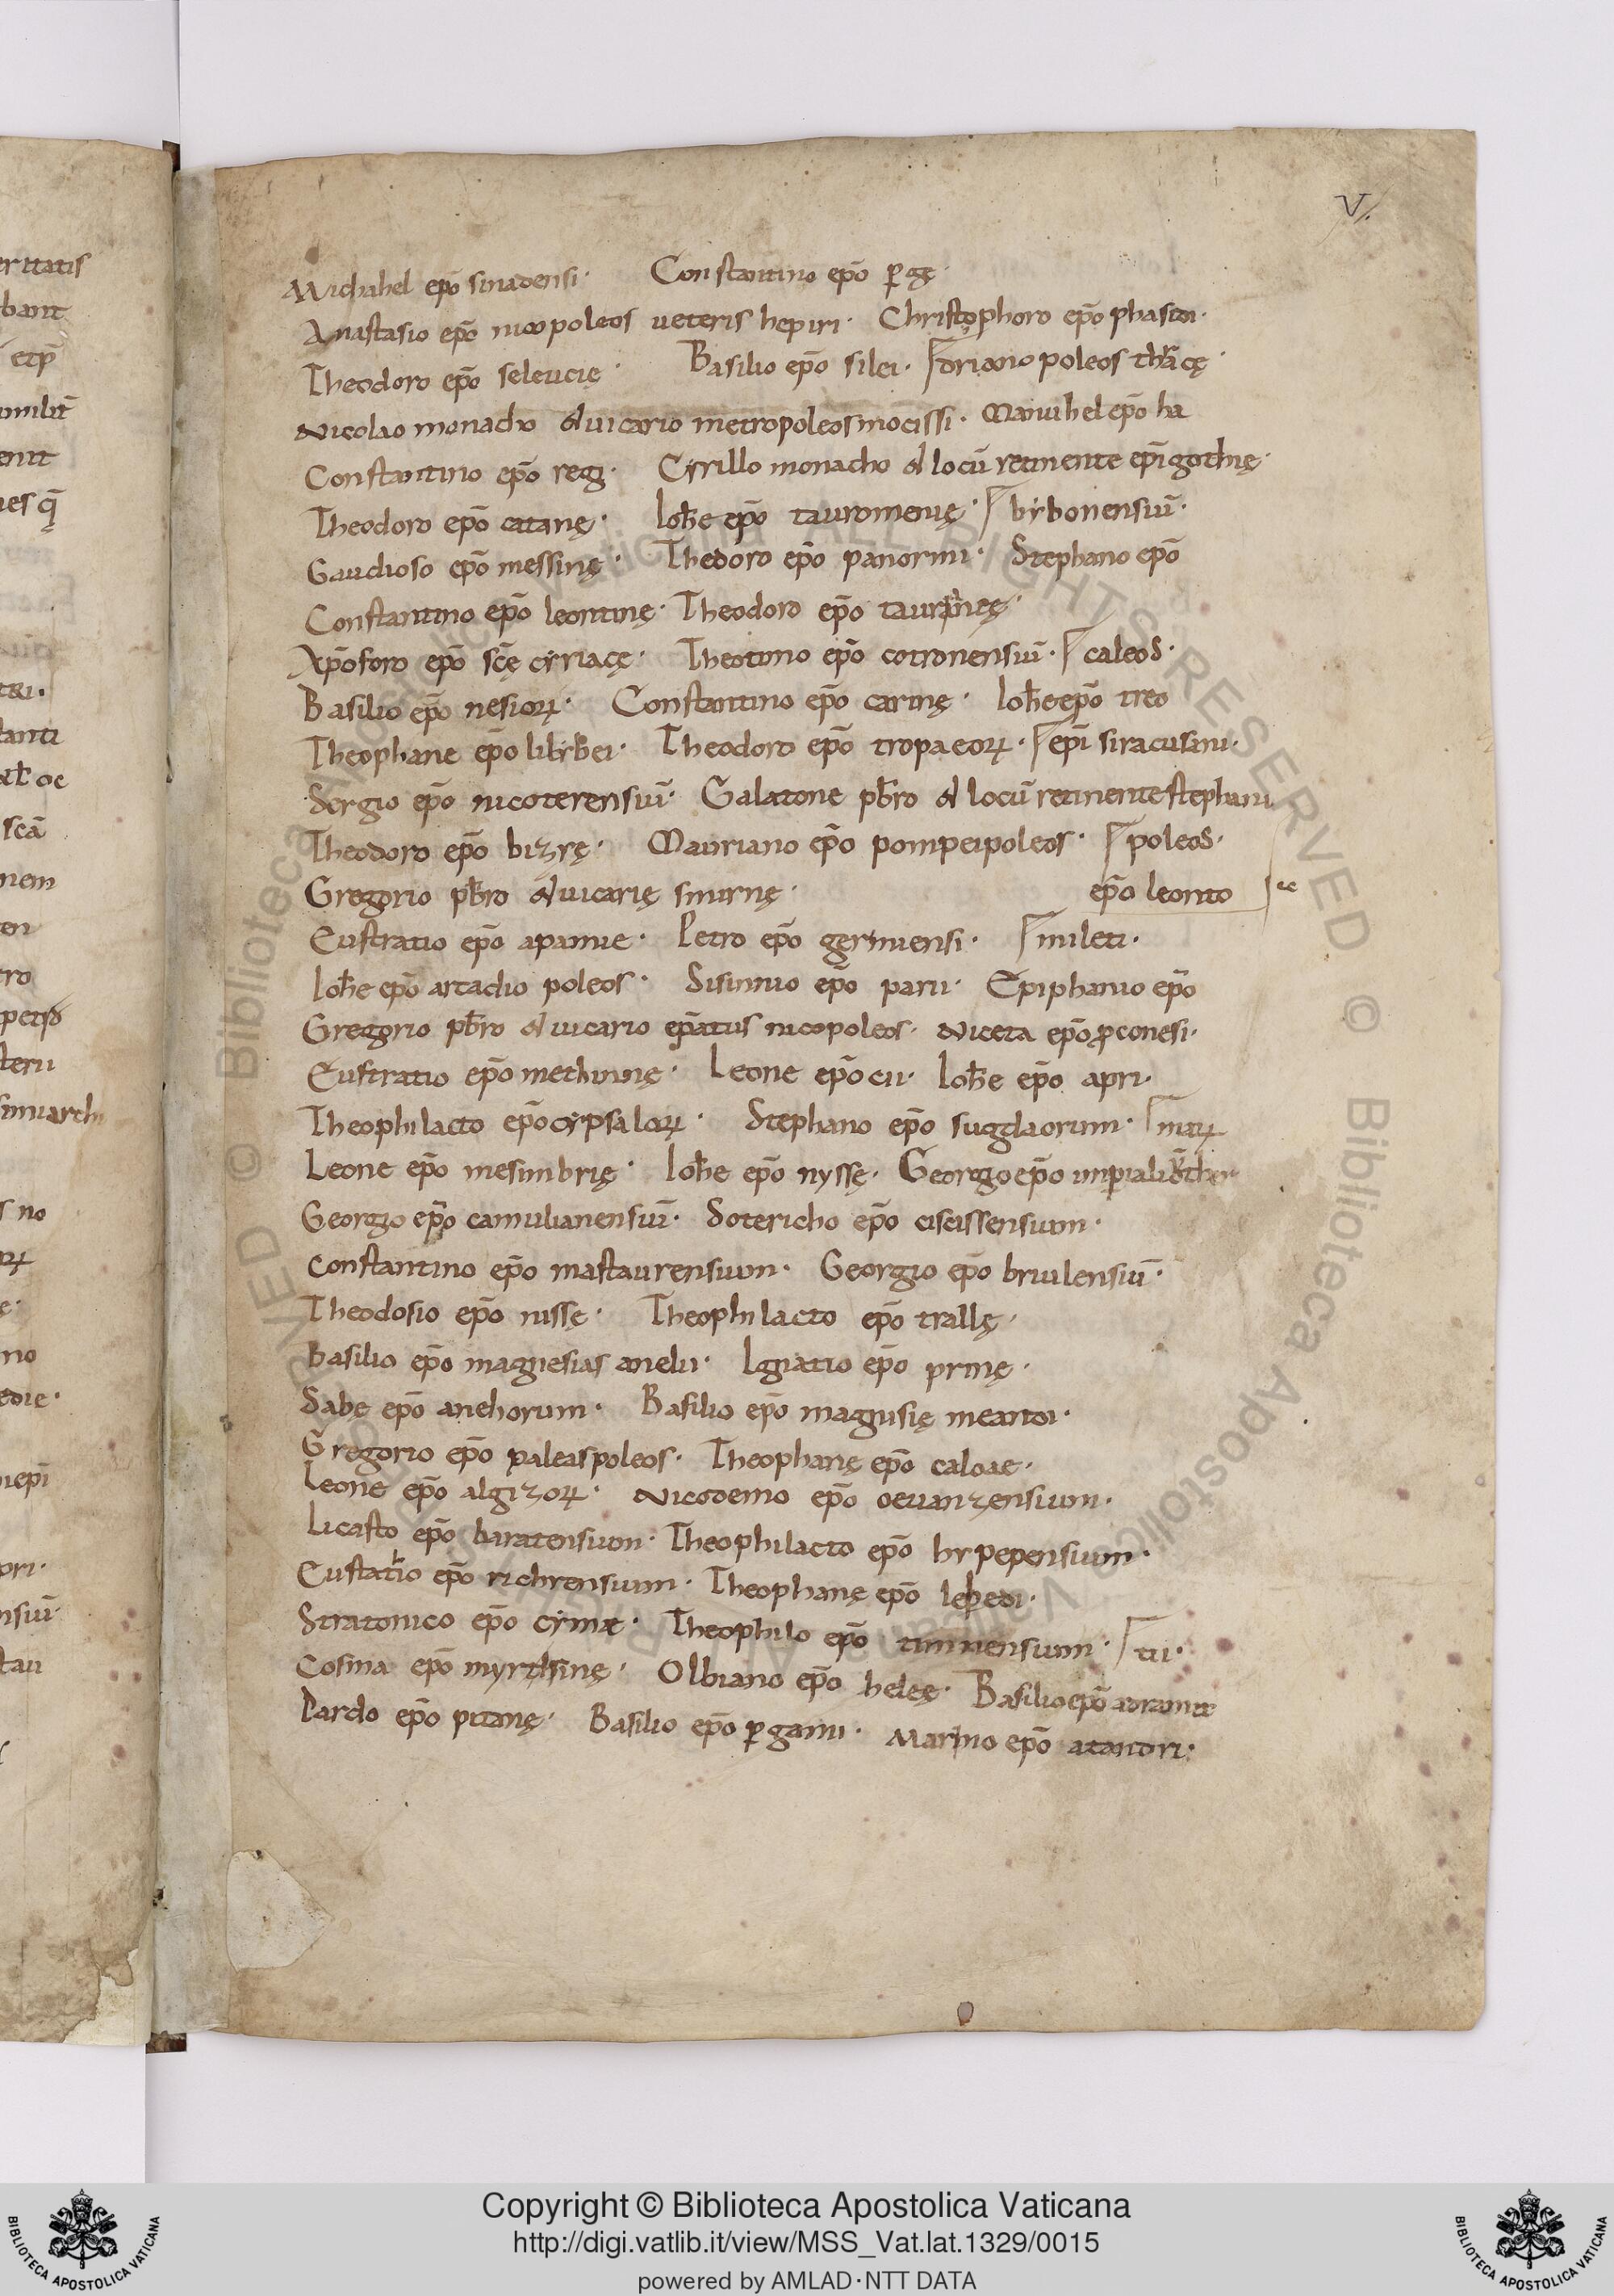 V
Michahel ep̄o sinadensi· Constantino ep̄o ꝑgę·
Anastasio ep̄o nicopoleos ueteris hepiri· Christophoro ep̄o phasidi·
Theodoro ep̄o seleucię· Basilio ep̄o silei· driano poleos thracę·
Nicolao monacho & uicario metropoleos mocissi· Manuhel ep̄o ha
Constantino ep̄o regi· Cyrillo monacho & locū retinente ep̄i gothię·
Theodoro ep̄o catanę· Ioħe ep̄o tauromenię· bybonensiū·
Gaudioso ep̄o messinę· Thedoro ep̄o panormi· Stephano ep̄o
Constantino ep̄o leontinę· Theodoro ep̄o
Xp̄oforo ep̄o sc̄ę cyriacę· Theotimo ep̄o cotronensiū· caleos·
Basilio ep̄o nesioꝝ· Constantino ep̄o carinę· Ioħe ep̄o treo
Theophane ep̄o lilybei· Theodoro ep̄o tropaeoꝝ· ep̄i siracusani·
Sergio ep̄o nicoterensiū· Galatone pb̄ro & locū retinente stephani
Theodoro ep̄o bizyę· Mauriano ep̄o pompeipoleos· poleos·
Gregorio pb̄ro & uicarię smirnę· ep̄o leonto
Eustratio ep̄o apamie· Petro ep̄o germensi· mileti·
Ioħe ep̄o arcadio poleos· Sisinnio ep̄o parii· Epiphanio ep̄o
Gregorio pb̄ro & uicario ep̄atus nicopoleos· Niceta ep̄o ꝓconesi·
Eustratio ep̄o methimnę· Leone ep̄o cii· Ioħe ep̄o apri·
Theophilacto ep̄o cypsaloꝝ· Stephano ep̄o sugdaorum· maꝝ
Leone ep̄o mesimbrię· Ioħe ep̄o nyssę· Georgo ep̄o
Georgio ep̄o camulianensiū· Sotericho ep̄o ciscissensium·
Constantino ep̄o mastaurensium· Georgio ep̄o briulensiū·
Theodosio ep̄o nissę· Theophilacto ep̄o trallę·
Basilio ep̄o magnesias anelii· Ignatio ep̄o prinę·
Sabe ep̄o anehorum· Basilio ep̄o magnisię meandi·
Gregorio ep̄o paleaspoleos· Theophanę ep̄o caloae·
Leone ep̄o algizoꝝ· Nicodemo ep̄o oeuanzensium·
Licasto ep̄o baratensium· Theophilacto ep̄o hypepensium·
Eustathio ep̄o richrensium· Theophanę ep̄o lebedi·
Stratonico ep̄o cymæ· Theophilo ep̄o timnensium· tii·
Cosma ep̄o myrthsinę· Olbiano ep̄o heleę· Basilio ep̄o adramit
Pardo ep̄o pitanę· Basilio ep̄o ꝑgami· Marino ep̄o atandri·
Copyright © Biblioteca Apostolica Vaticana
http://digi.vatlib.it/view/MSS_Vat.lat.1329/0015
powered by AMLAD·NTT DATA